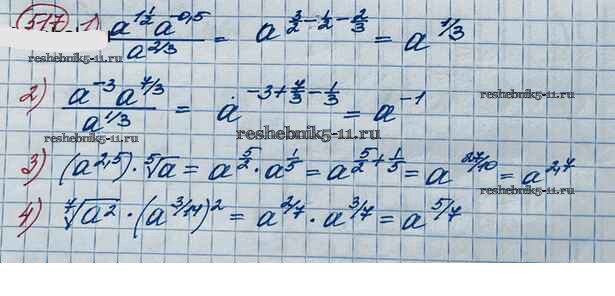 517 1) (a^{1 1/2} a^{-0,5})/(a^{2/3}) = a^{3/2 - 1/2 - 2/3} = a^{1/3}
reshebnik5-11.ru
2) (a^{-3} a^{7/3})/(a^{1/3}) = a^{-3 + 7/3 - 1/3} = a^{-1}
reshebnik5-11.ru
reshebnik5-11.ru
reshebnik5-11.ru
3) (a^{2,5}) · ⁵√a = a^{5/2} · a^{1/5} = a^{5/2 + 1/5} = a^{27/10} = a^{2,7}
reshebnik5-11.ru
4) ⁷√a² · (a^{3/14})² = a^{2/7} · a^{3/7} = a^{5/7}